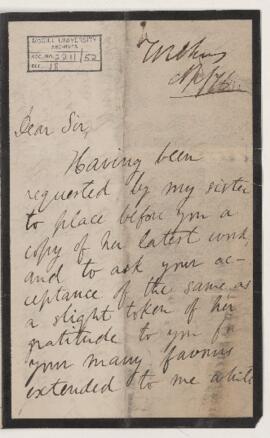 McGILL UNIVERSITY
ARCHIVES
ACC. NO. 2211/52
REF. 18
Dear Sir,
Having been
requested by my sister
to place before you a
copy of her latest work,
and to ask your ac-
ceptance of the same as
a slight token of her
gratitude to you for
your many favours
extended to me while